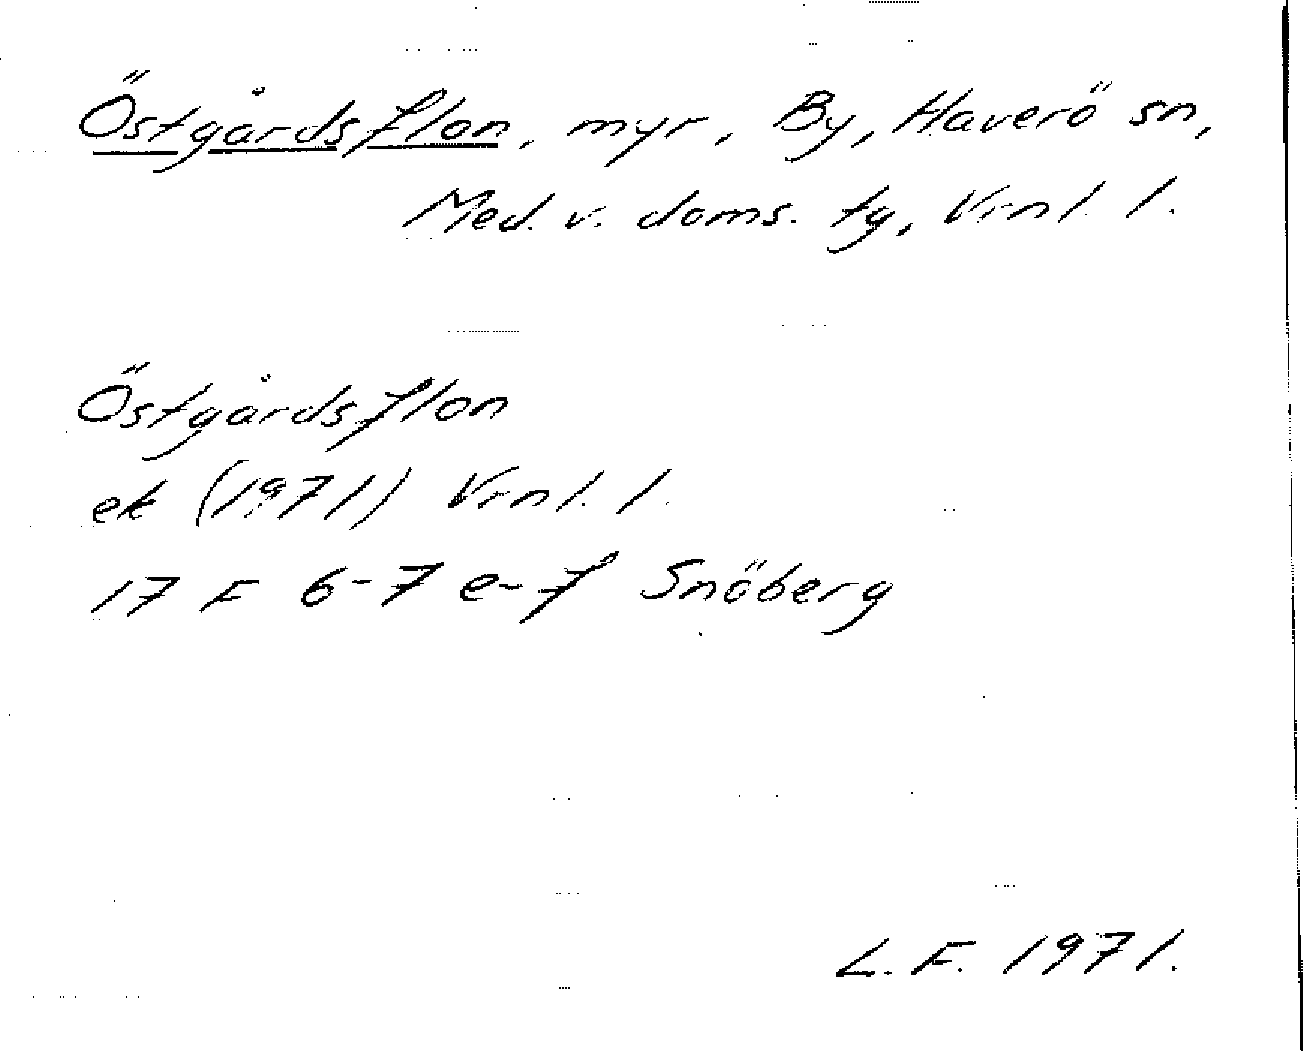 Östgårdsflon, myr, By, Haverö sn,
Med. v. doms. tg, Vrnl. l.
Östgårdsflon
ek (1971) Vrnl. l.
17 F 6-7 e-f Snöberg
L. F. 1971.